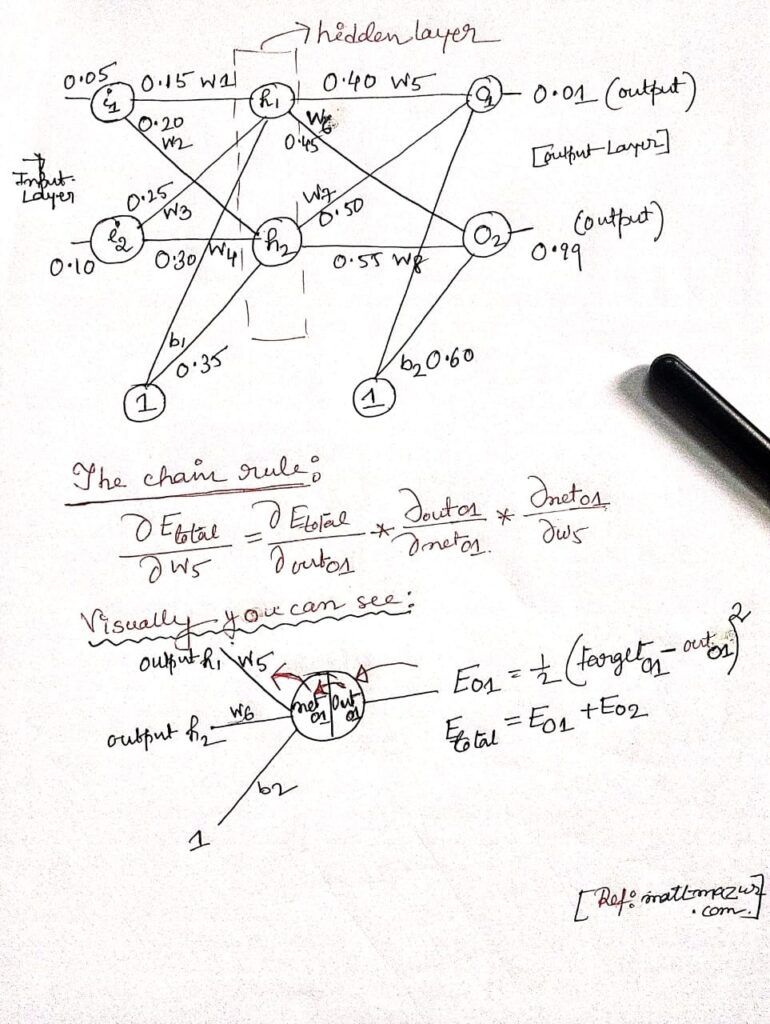 hidden layer
0.05 i1 0.15 w1 h1 0.40 w5 O1 0.01 (output)
0.20 w2
w6 0.45
[output-Layer]
Input-Layer
0.25 w3
w7 0.50
(output)
0.10 i2 0.30 w4 h2 0.55 w8 O2 0.99
b1 0.35
b2 0.60
1 1
The chain rule:
∂Etotal/∂w5 = ∂Etotal/∂outo1 * ∂outo1/∂neto1 * ∂neto1/∂w5
Visually you can see:
output h1 w5
neto1 outo1
Eo1 = 1/2 (targeto1 - outo1)^2
output h2 w6
Etotal = Eo1 + Eo2
b2
1
[Ref: mattmazur
.com.]